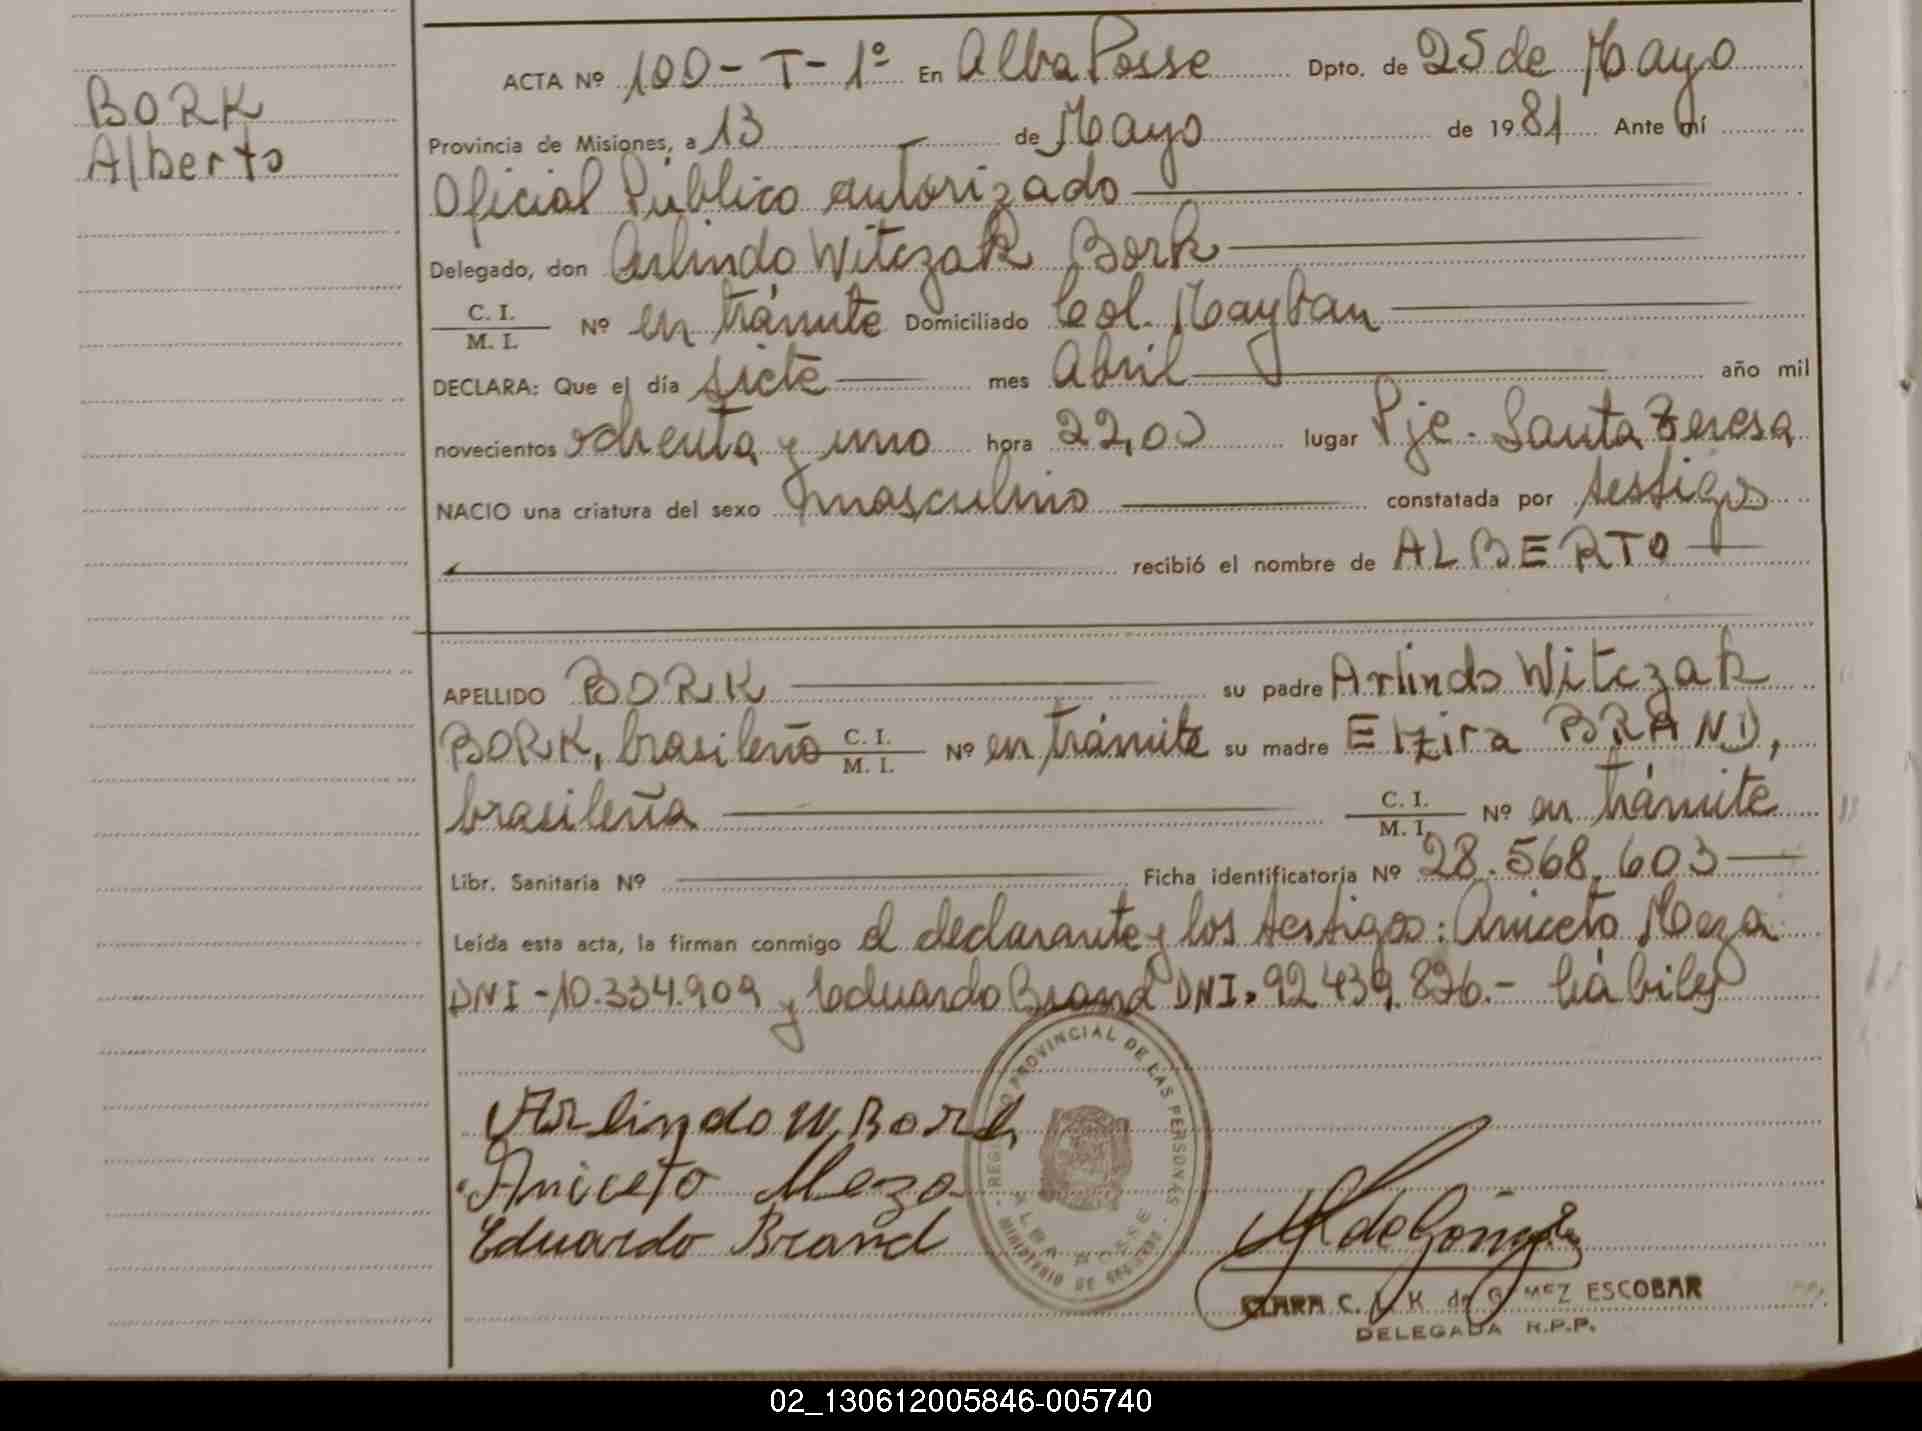 BORK
Alberto
ACTA Nº 100-T-1º En Alba Posse Dpto. de 25 de Mayo
Provincia de Misiones, a 13 de Mayo de 1981 Ante mí
Oficial Público autorizado
Delegado, don Arlindo Witczak Bork
C. I.
M. I. Nº en trámite Domiciliado Col. Maytau
DECLARA: Que el día siete mes Abril año mil
novecientos ochenta y uno hora 22,00 lugar Pje. Santa Teresa
NACIO una criatura del sexo masculino constatada por testigos
recibió el nombre de ALBERTO
APELLIDO BORK su padre Arlindo Witczak
BORK, brasileño C. I. M. I. Nº en trámite su madre Elzira BRAND,
brasileña C. I. M. I. Nº en trámite
Libr. Sanitaria Nº Ficha identificatoria Nº 28.568.603
Leída esta acta, la firman conmigo el declarante y los testigos: Aniceto Meza
DNI-10.334.909 y Eduardo Brand DNI. 92439.826.- hábiles
REGISTRO PROVINCIAL DE LAS PERSONAS
ALBA POSSE
MINISTERIO DE
Arlindo W. Bork
Aniceto Meza
Eduardo Brand
CLARA C. K. de GOMEZ ESCOBAR
DELEGADA R.P.P.
02_130612005846-005740